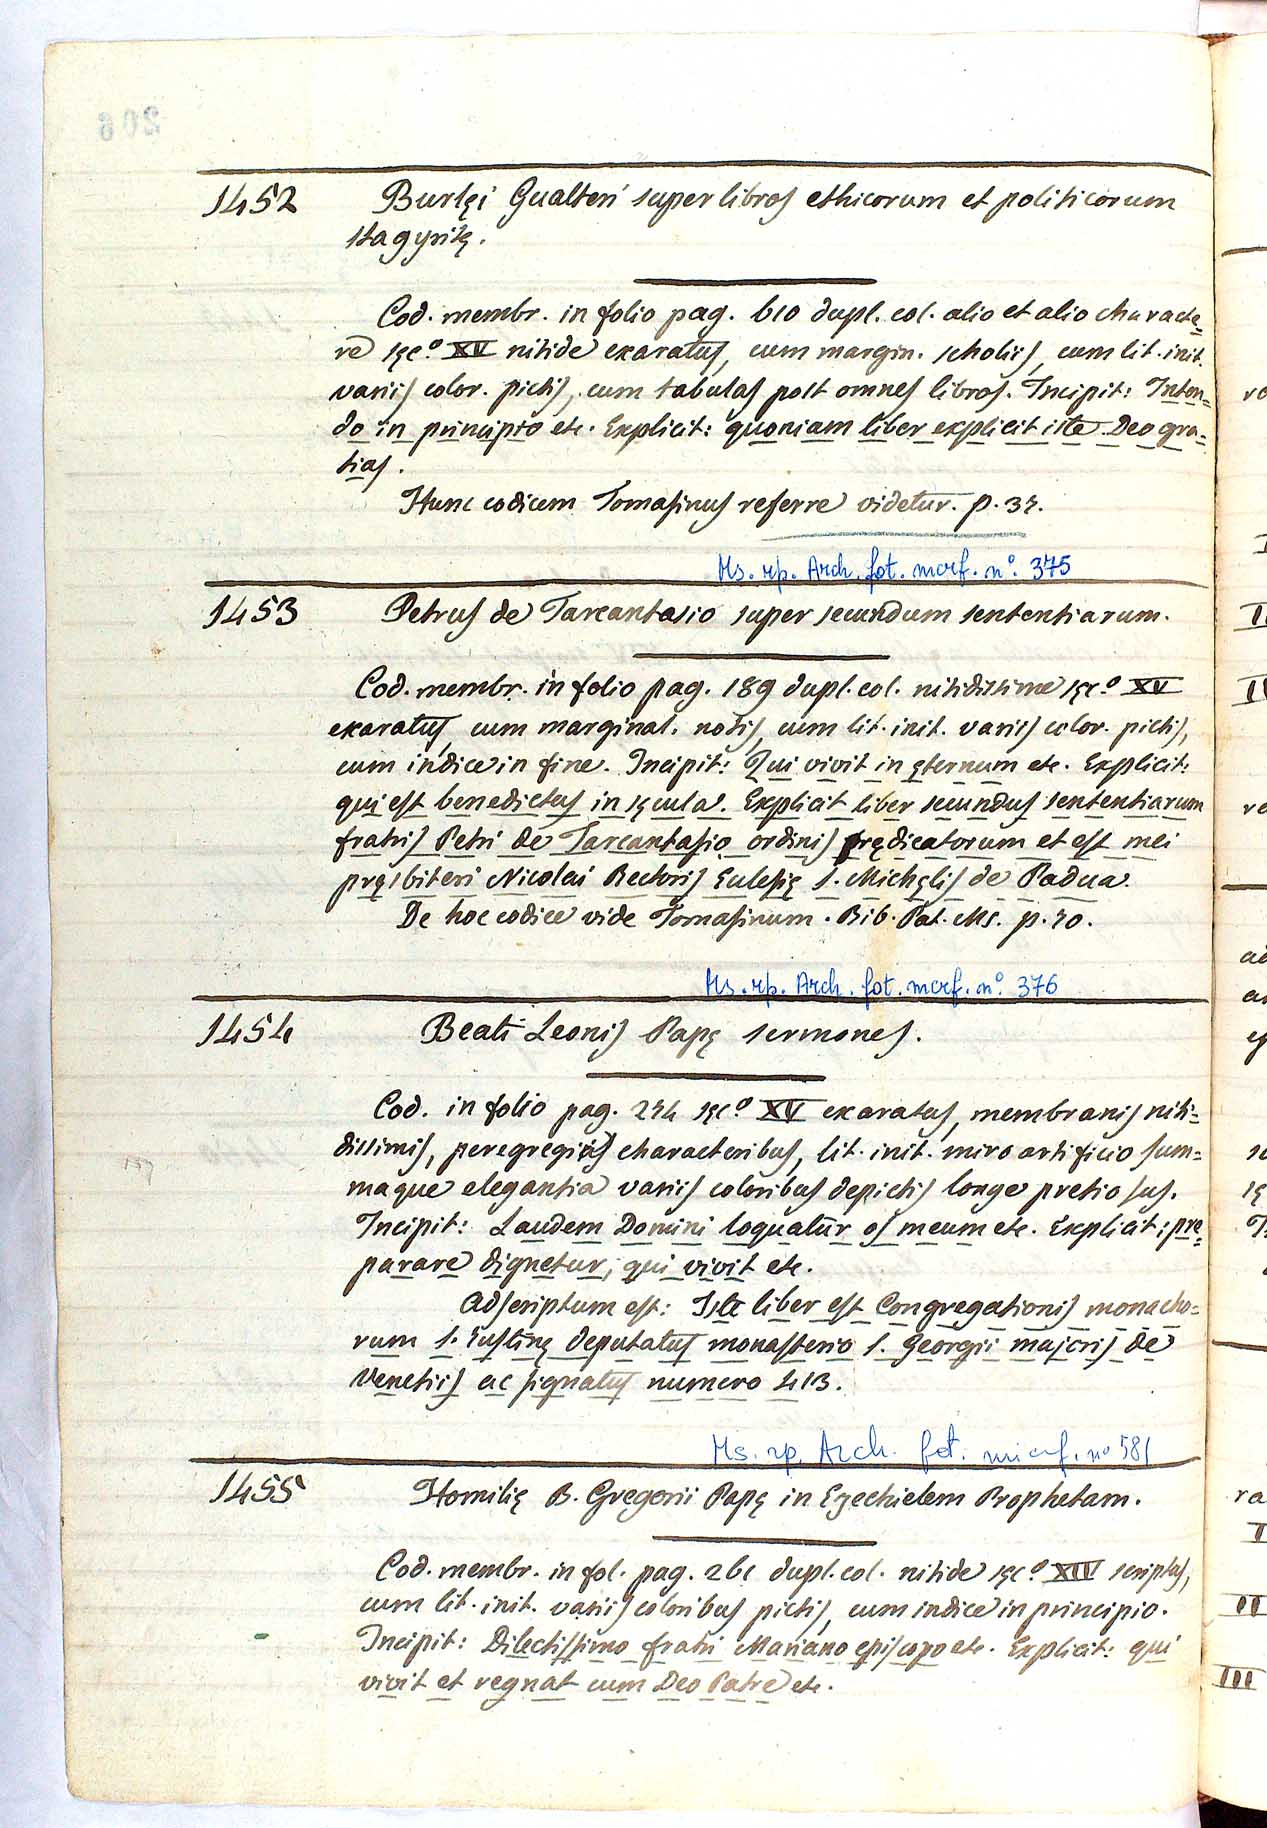 1452 Burlęi Gualteri super libros ethicorum et politicorum
stagyritę.
Cod. membr. in folio pag. 610 dupl. col. alio et alio characte-
re sęc.º XV nitide exaratus, cum margin. scholiis, cum lit. init.
variis color. pictis, cum tabulas post omnes libros. Incipit: Inten=
do in principio etc. Explicit: quoniam liber explicit iste Deo gra=
tias.
Hunc codicem Tomasinus referre videtur. p. 37.
Ms. rp. Arch. fot. mcrf. nº. 375
1453 Petrus de Tarcantasio super secundum sententiarum.
Cod. membr. in folio pag. 189 dupl. col. nitidissime sęc.º XV
exaratus, cum marginal. notis, cum lit. init. variis color. pictis,
cum indice in fine. Incipit: Qui vivit in ęternum etc. Explicit:
qui est benedictus in sęcula. Explicit liber secundus sententiarum
fratris Petri de Tarcantasio ordinis prędicatorum et est mei
pręsbiteri Nicolai Rectoris Eulesię S. Michęlis de Padua.
De hoc codice vide Tomasinum. Bib. Pat. Ms. p. 20.
Ms. rp. Arch. fot. mcrf. nº. 376
1454 Beati Leonis Papę sermones.
Cod. in folio pag. 274 sęc.º XV exaratus, membranis niti=
dissimis, peregregiis characteribus, lit. init. miro artificio sum=
maque elegantia variis coloribus depictis longe pretiosus.
Incipit: Laudem Domini loquatur os meum etc. Explicit: prę=
parare dignetur, qui vivit etc.
Adscriptum est: Iste liber est Congregationis monacho=
rum S. Iustinę deputatus monasterio S. Georgii majoris de
Venetiis ac signatus numero 413.
Ms. rp. Arch. fot. micrf. nº 581
1455 Homilię B. Gregorii Papę in Ezechielem Prophetam.
Cod. membr. in fol. pag. 261 dupl. col. nitide sęc.º XIV scriptus,
cum lit. init. variis coloribus pictis, cum indice in principio.
Incipit: Dilectissimo fratri Mariano episcopo etc. Explicit: qui
vivit et regnat cum Deo Patre etc.